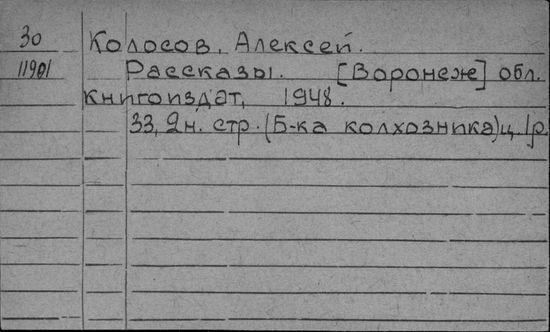 30 Колосов, Алексей.
11901 Рассказы. [Воронеж] обл.
книгоиздат, 1948.
33, 2н. стр. (Б-ка колхозника) ц. 1р.